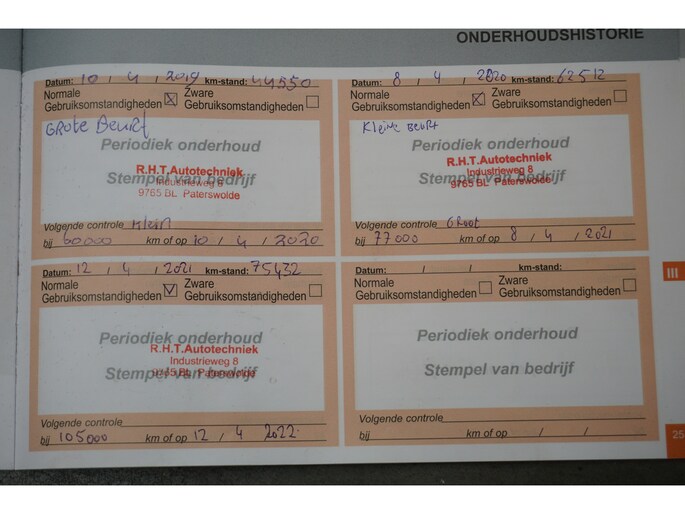 ONDERHOUDSHISTORIE
Datum: 10 / 4 / 2019 km-stand: 44550
Normale Gebruiksomstandigheden ☒ Zware Gebruiksomstandigheden ☐
GROTE BEURT
Periodiek onderhoud
R.H.T.Autotechniek
Industrieweg 8
Stempel van bedrijf
9765 BL Paterswolde
Volgende controle Klein
bij 60000 km of op 10 / 4 / 2020
Datum: 8 / 4 / 2020 km-stand: 62512
Normale Gebruiksomstandigheden ☒ Zware Gebruiksomstandigheden ☐
Kleine BEURT
Periodiek onderhoud
R.H.T.Autotechniek
Industrieweg 8
Stempel van bedrijf
9765 BL Paterswolde
Volgende controle Groot
bij 77000 km of op 8 / 4 / 2021
Datum: 12 / 4 / 2021 km-stand: 75432
Normale Gebruiksomstandigheden ☑ Zware Gebruiksomstandigheden ☐
Periodiek onderhoud
R.H.T.Autotechniek
Industrieweg 8
Stempel van bedrijf
9765 BL Paterswolde
Volgende controle
bij 105000 km of op 12 / 4 2022
Datum: / / km-stand:
Normale Gebruiksomstandigheden ☐ Zware Gebruiksomstandigheden ☐
Periodiek onderhoud
Stempel van bedrijf
Volgende controle
bij km of op / /
III
25